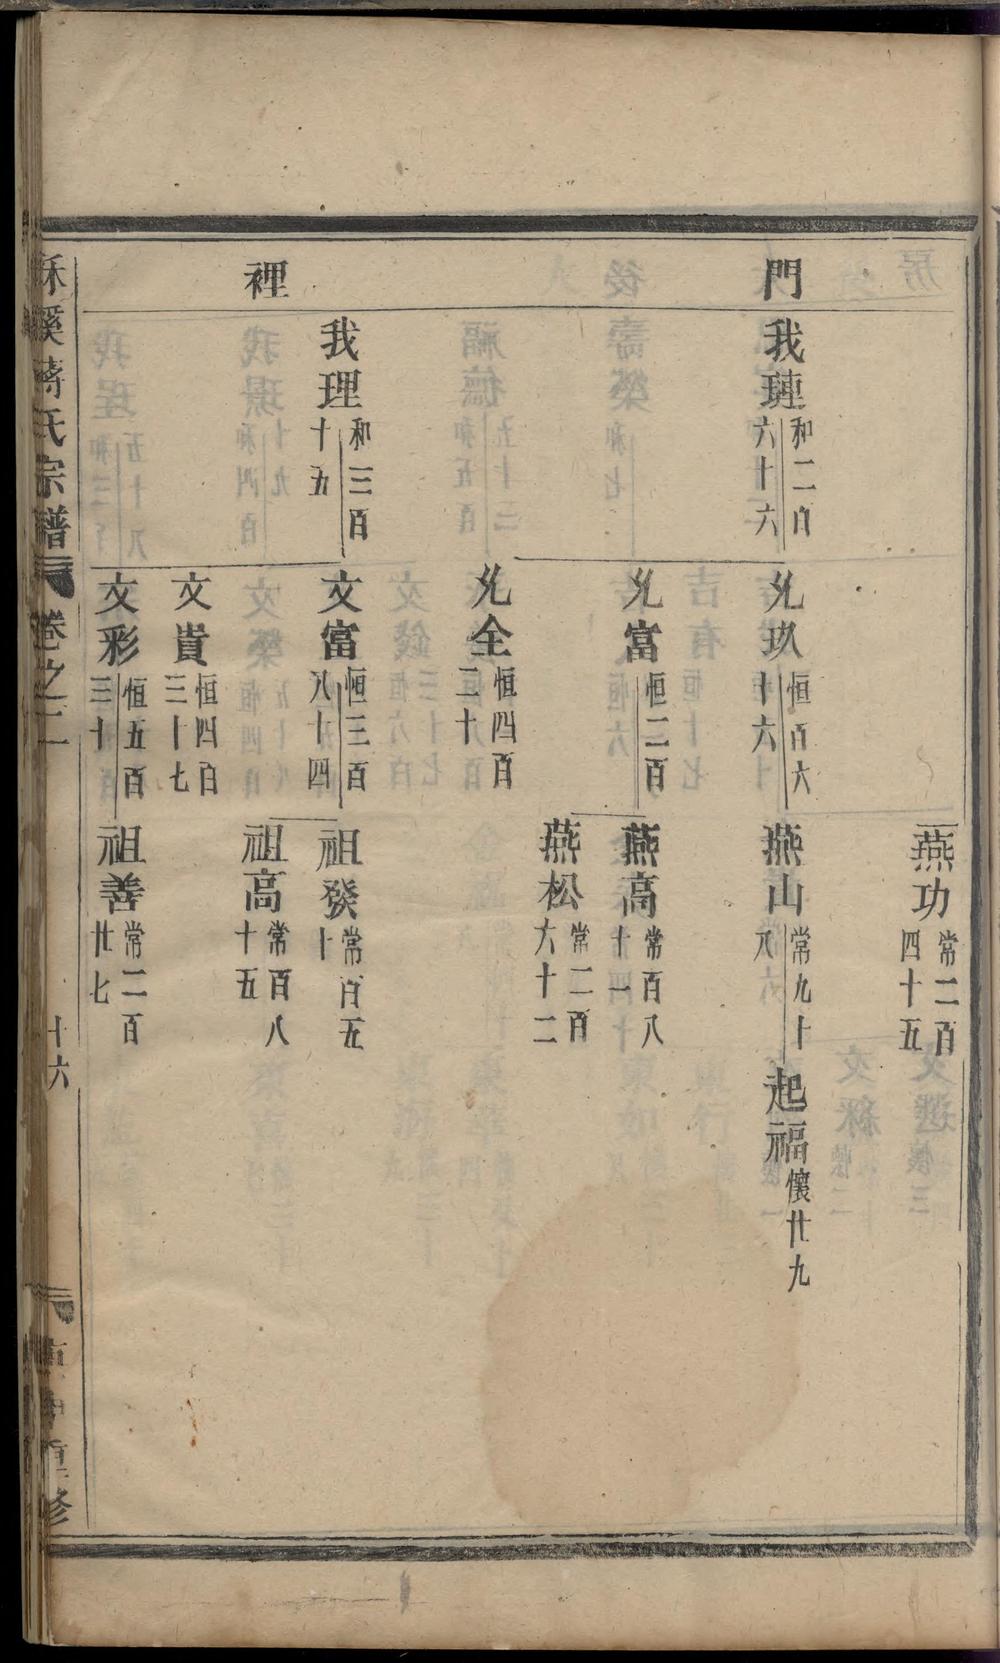 門
裡
我璉 和二百六十六
我理 和三百十五
允玖 恒百六十六
允富 恒二百
允全 恒四百三十
文富 恒三百八十四
文貴 恒四百三十七
文彩 恒五百三十
燕功 常二百四十五
燕山 常九十八
燕高 常百八十一
燕松 常二百六十二
祖發 常百五十
祖高 常百八十五
祖善 常二百廿七
起福 懷廿九
蔣氏宗譜
卷之二
十六
重修